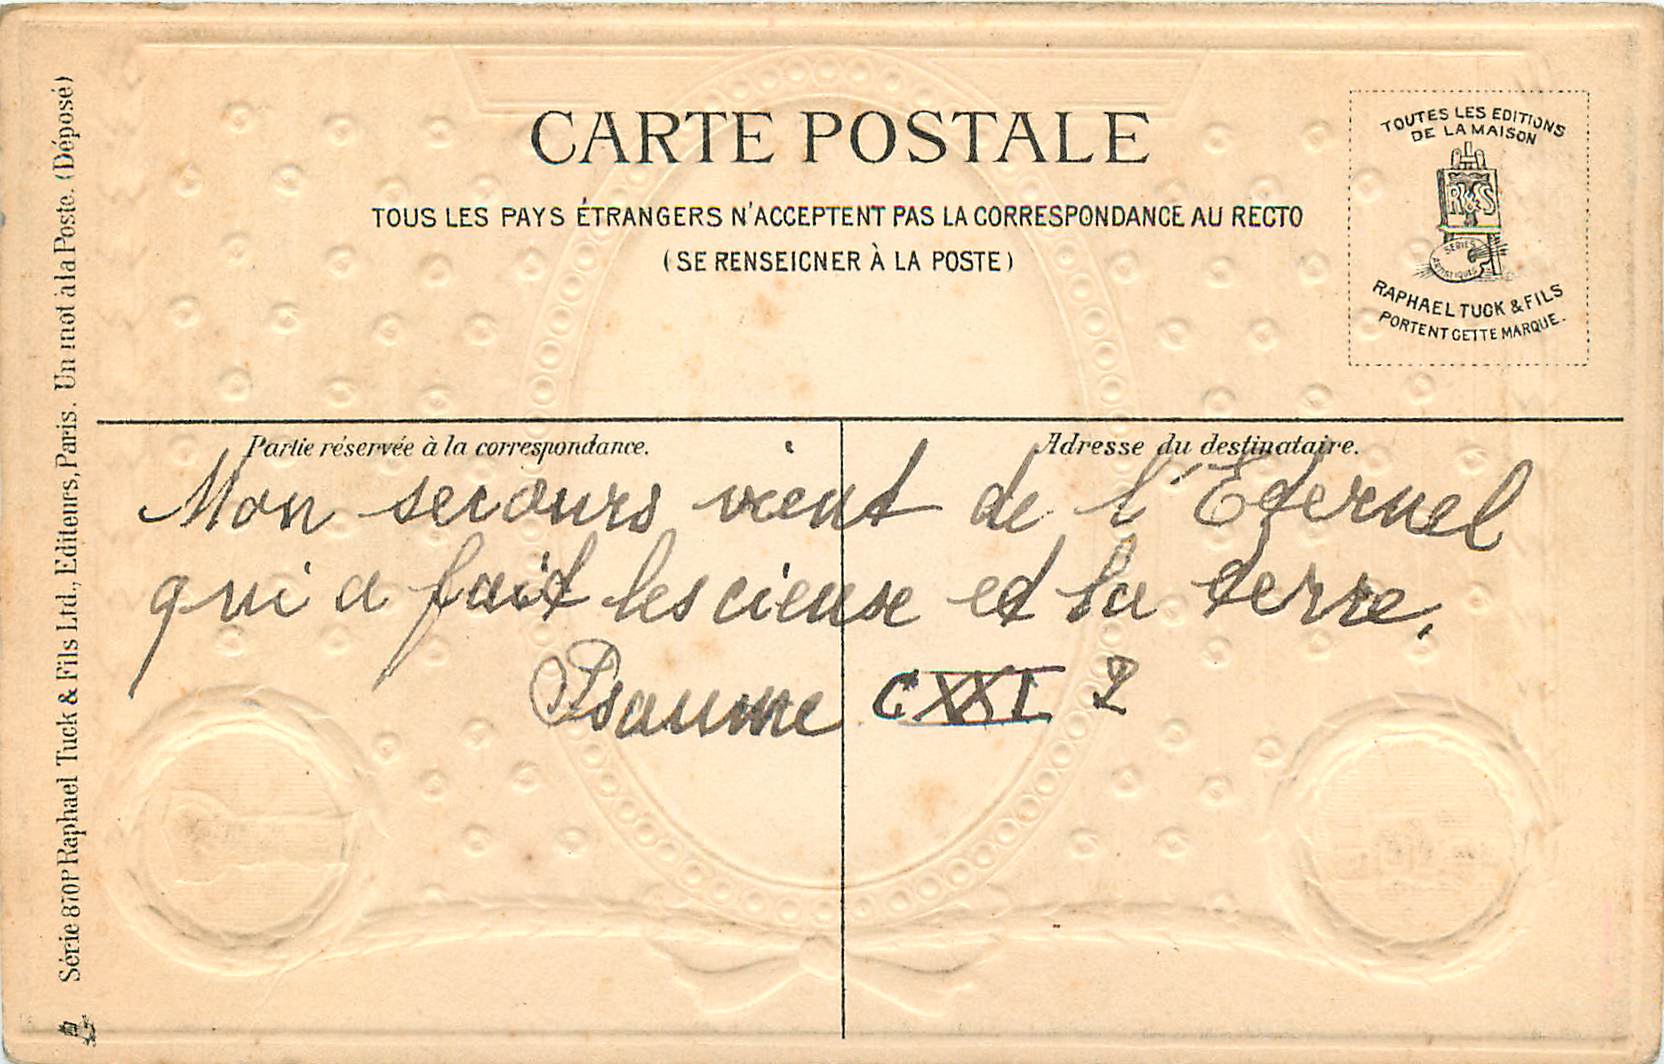 CARTE POSTALE
TOUS LES PAYS ÉTRANGERS N'ACCEPTENT PAS LA CORRESPONDANCE AU RECTO
(SE RENSEIGNER À LA POSTE)
TOUTES LES EDITIONS
DE LA MAISON
R&S
SERIES
ARTISTIQUES
RAPHAEL TUCK & FILS
PORTENT CETTE MARQUE.
Partie réservée à la correspondance.
Adresse du destinataire.
Mon secours vient de l'Eternel
qui a fait les cieux et la terre.
Psaume CXXI 2
Série 870P Raphael Tuck & Fils Ltd., Editeurs, Paris. Un mot à la Poste. (Déposé)